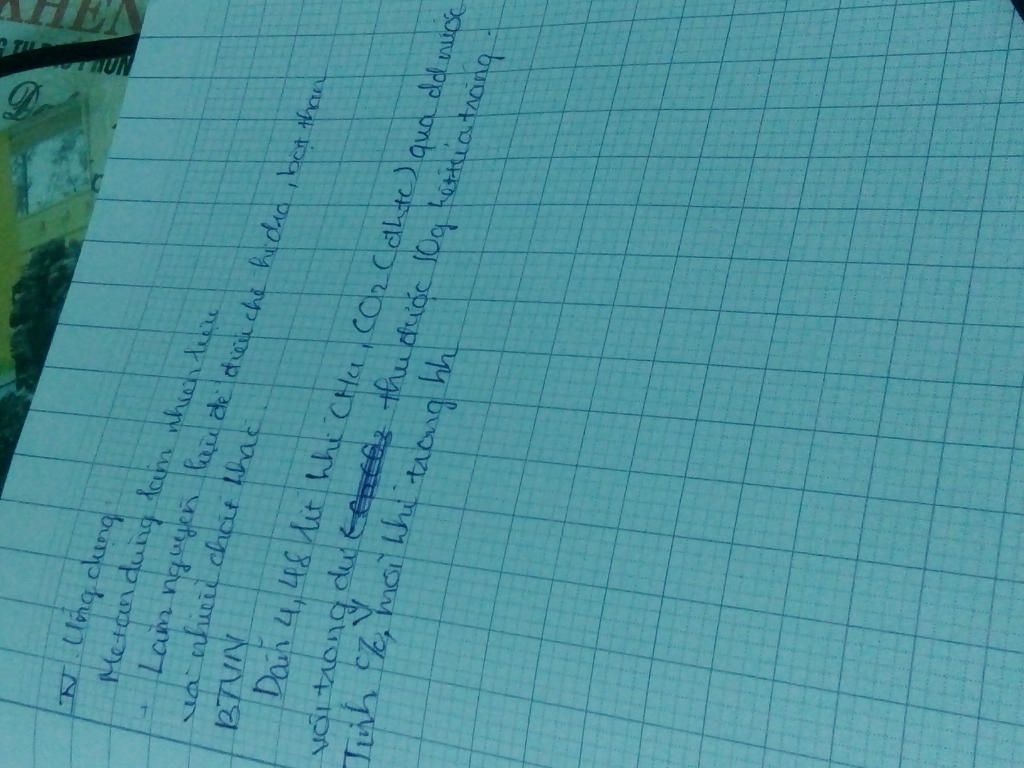 IV Ứng dụng
Metan dùng làm nhiên liệu
- Làm nguyên liệu để điều chế hiđro, bột than
và nhiều chất khác
BTVN
Dẫn 4,48 lít khí CH4, CO2 (đktc) qua dd nước
vôi trong dư thu được 10g kết tủa trắng.
Tính c%, V mỗi khí trong hh
KHEN